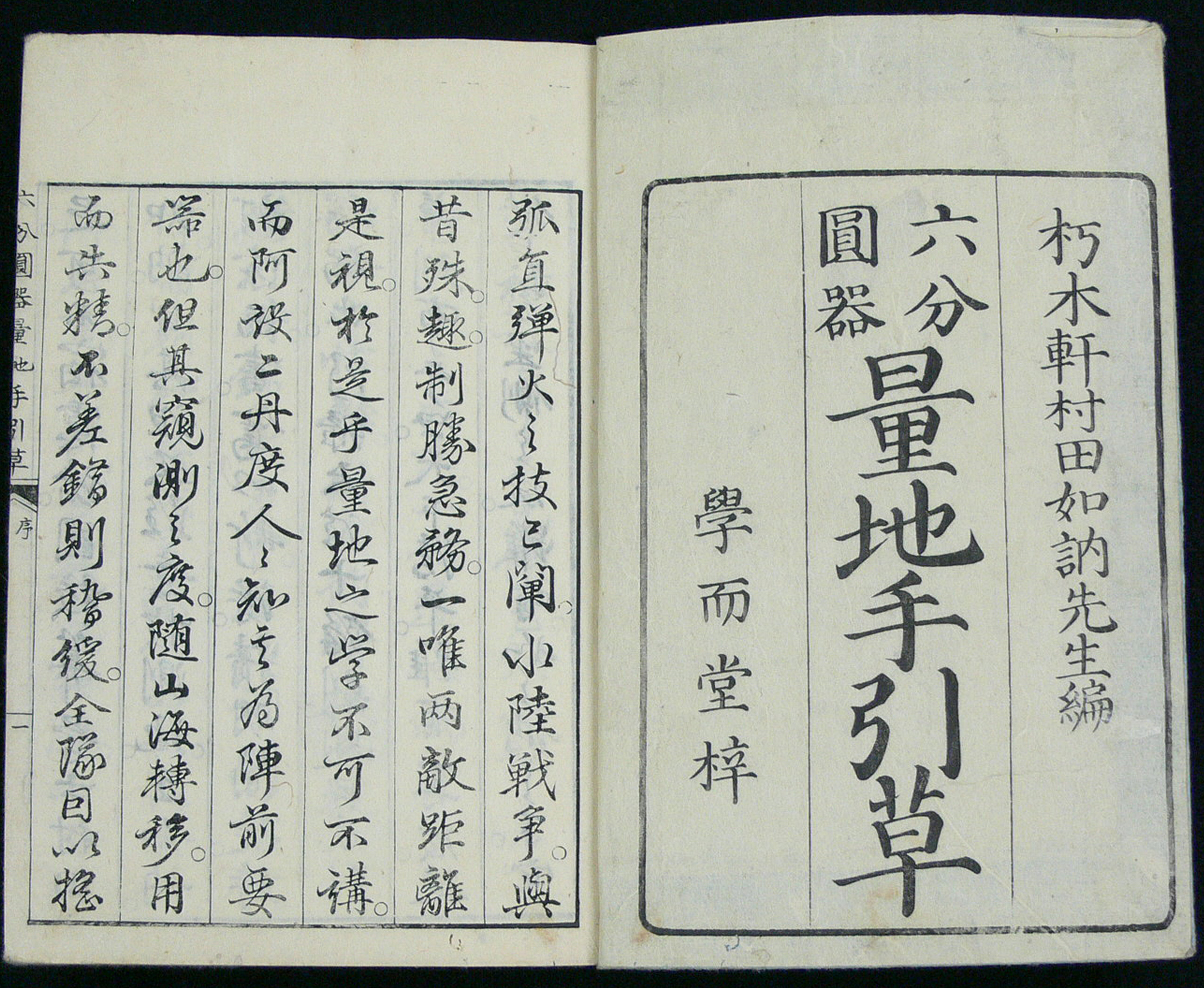 朽木軒村田如訥先生編
六分
圓器
量地手引草
學而堂梓
弧直弾火之技已闡。水陸戦争。與
昔殊。趣。制勝急務。一唯両敵距離
是視。於是乎量地之学不可不講。
而阿設二丹度人〻知其為陣前要
器也。但其窺測之度。随山海轉移。用
而共精。不差錯則稽緩。全隊因以搖
六分圓器量地手引草
序
一